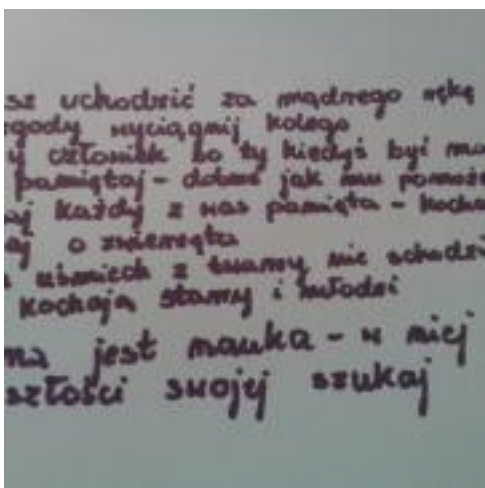 sz uchodzić za mądrego rękę
zgody wyciągnij kolego
y człowiek bo ty kiedyś być mo
pamiętaj - dobrze jak mu pomoże
aj każdy z nas pamięta - kocha
aj o zwierzęta
uśmiech z twarzy nie schodzi
kochają starzy i młodzi
na jest nauka - w niej
szłości swojej szukaj